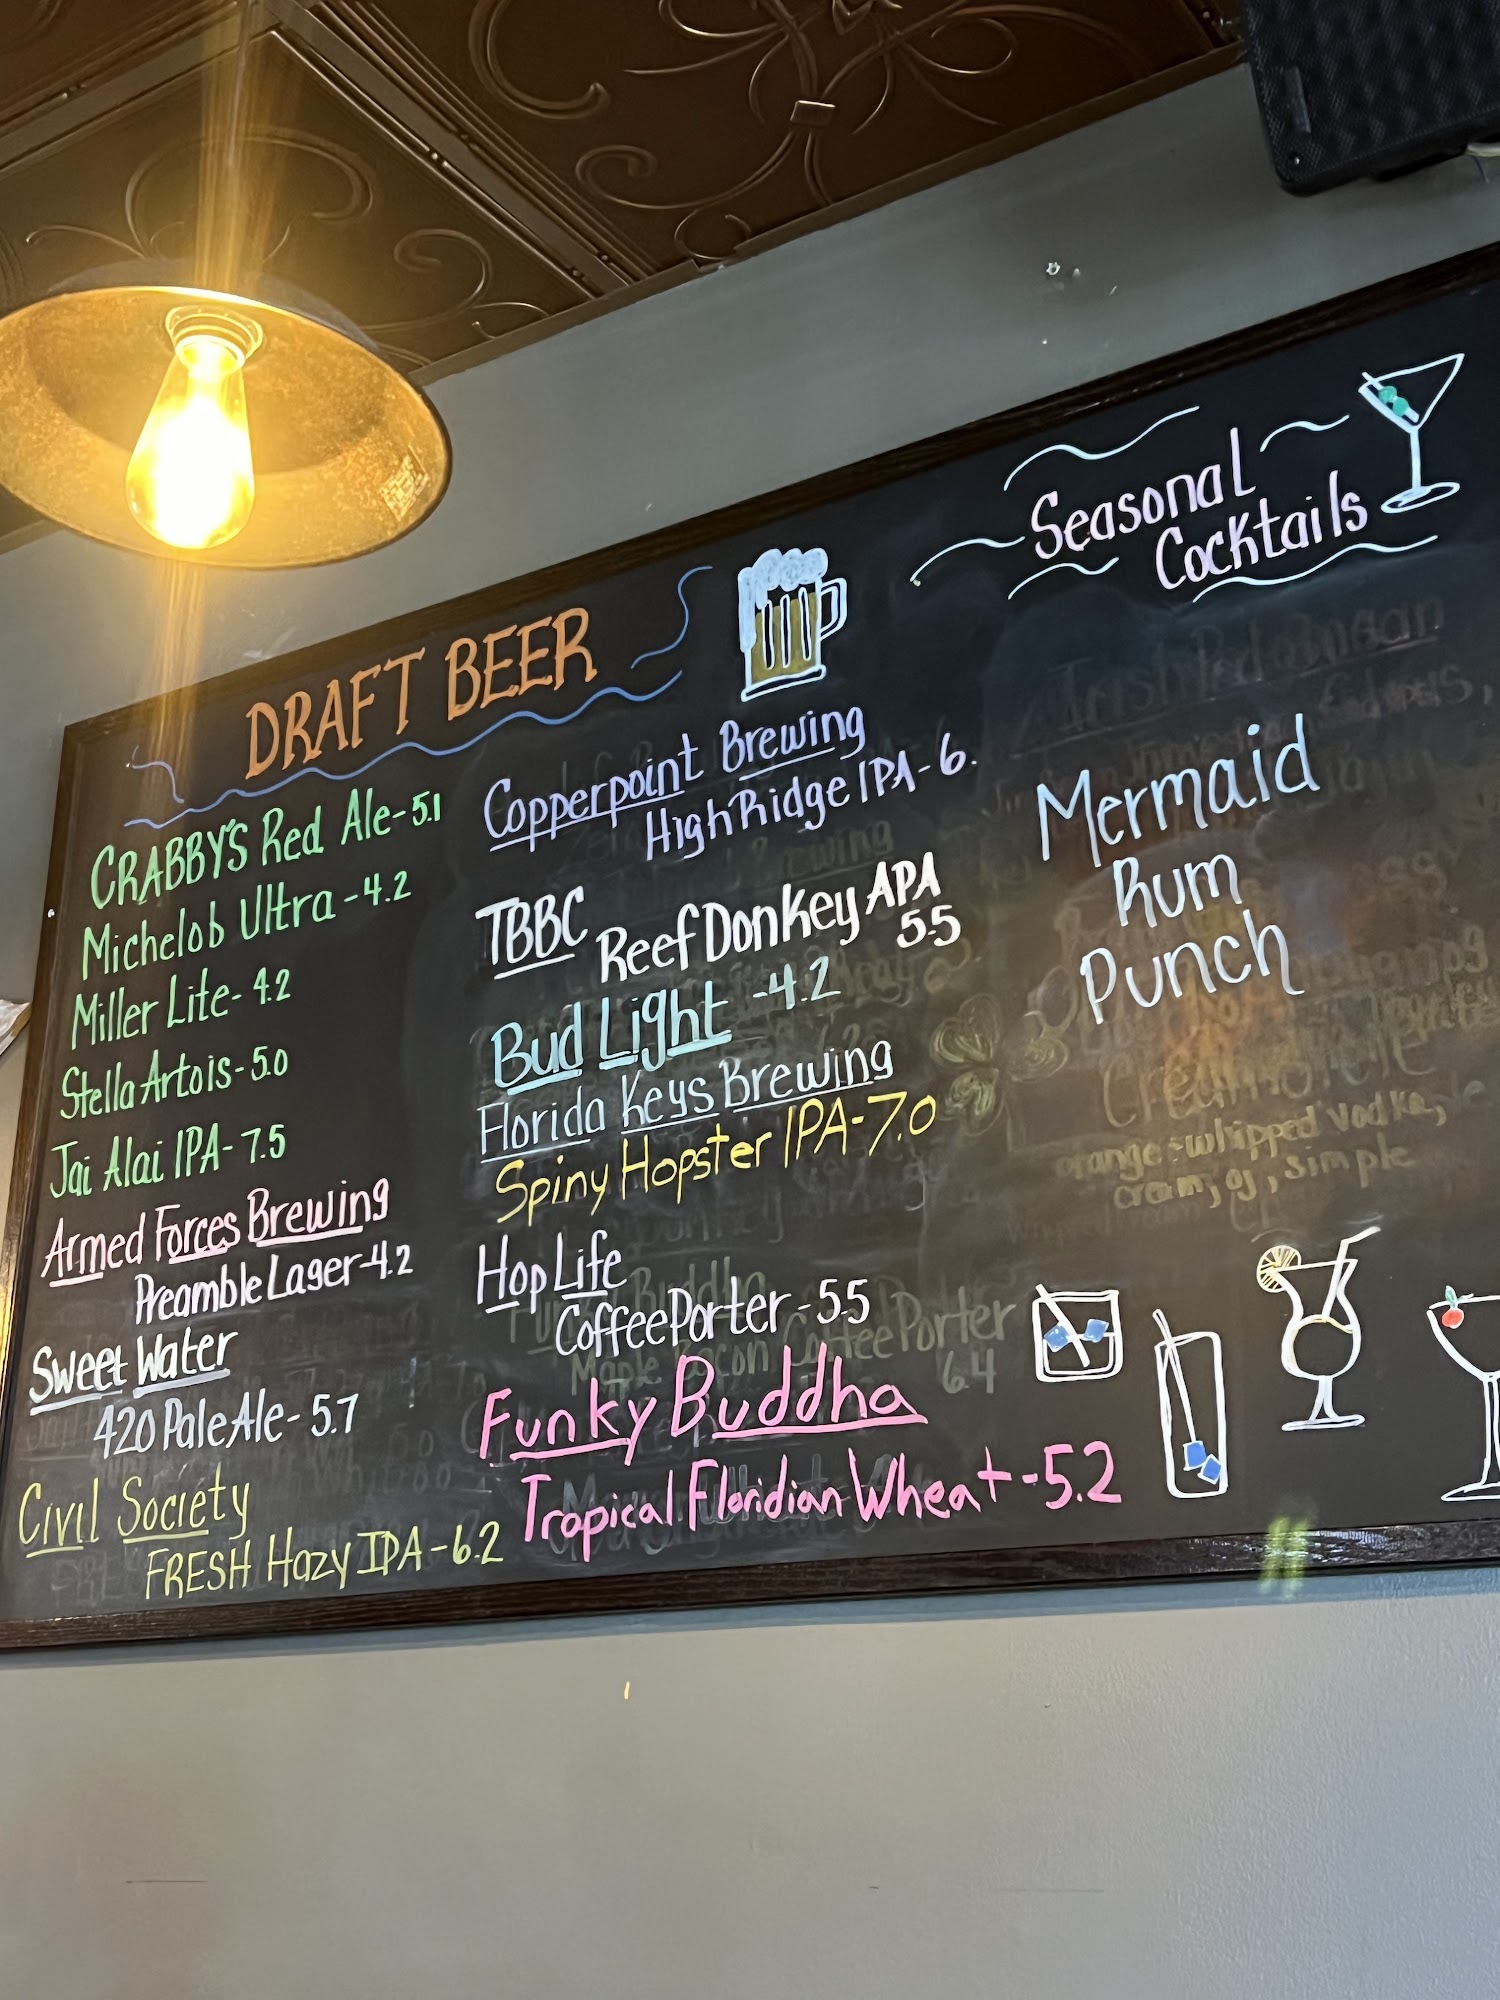 DRAFT BEER
CRABBY'S Red Ale-5.1
Michelob Ultra-4.2
Miller Lite-4.2
Stella Artois-5.0
Jai Alai IPA-7.5
Armed Forces Brewing
Preamble Lager-4.2
Sweet Water
420 Pale Ale-5.7
Civil Society
FRESH Hazy IPA-6.2
Copperpoint Brewing
High Ridge IPA-6.
TBBC
Reef Donkey APA
5.5
Bud Light-4.2
Florida Keys Brewing
Spiny Hopster IPA-7.0
Hop Life
Coffee Porter-5.5
Maple Bacon Coffee Porter
6.4
Funky Buddha
Tropical Floridian Wheat-5.2
Seasonal
Cocktails
Mermaid
Rum
Punch
orange whipped vodka,
cream, oj, simple